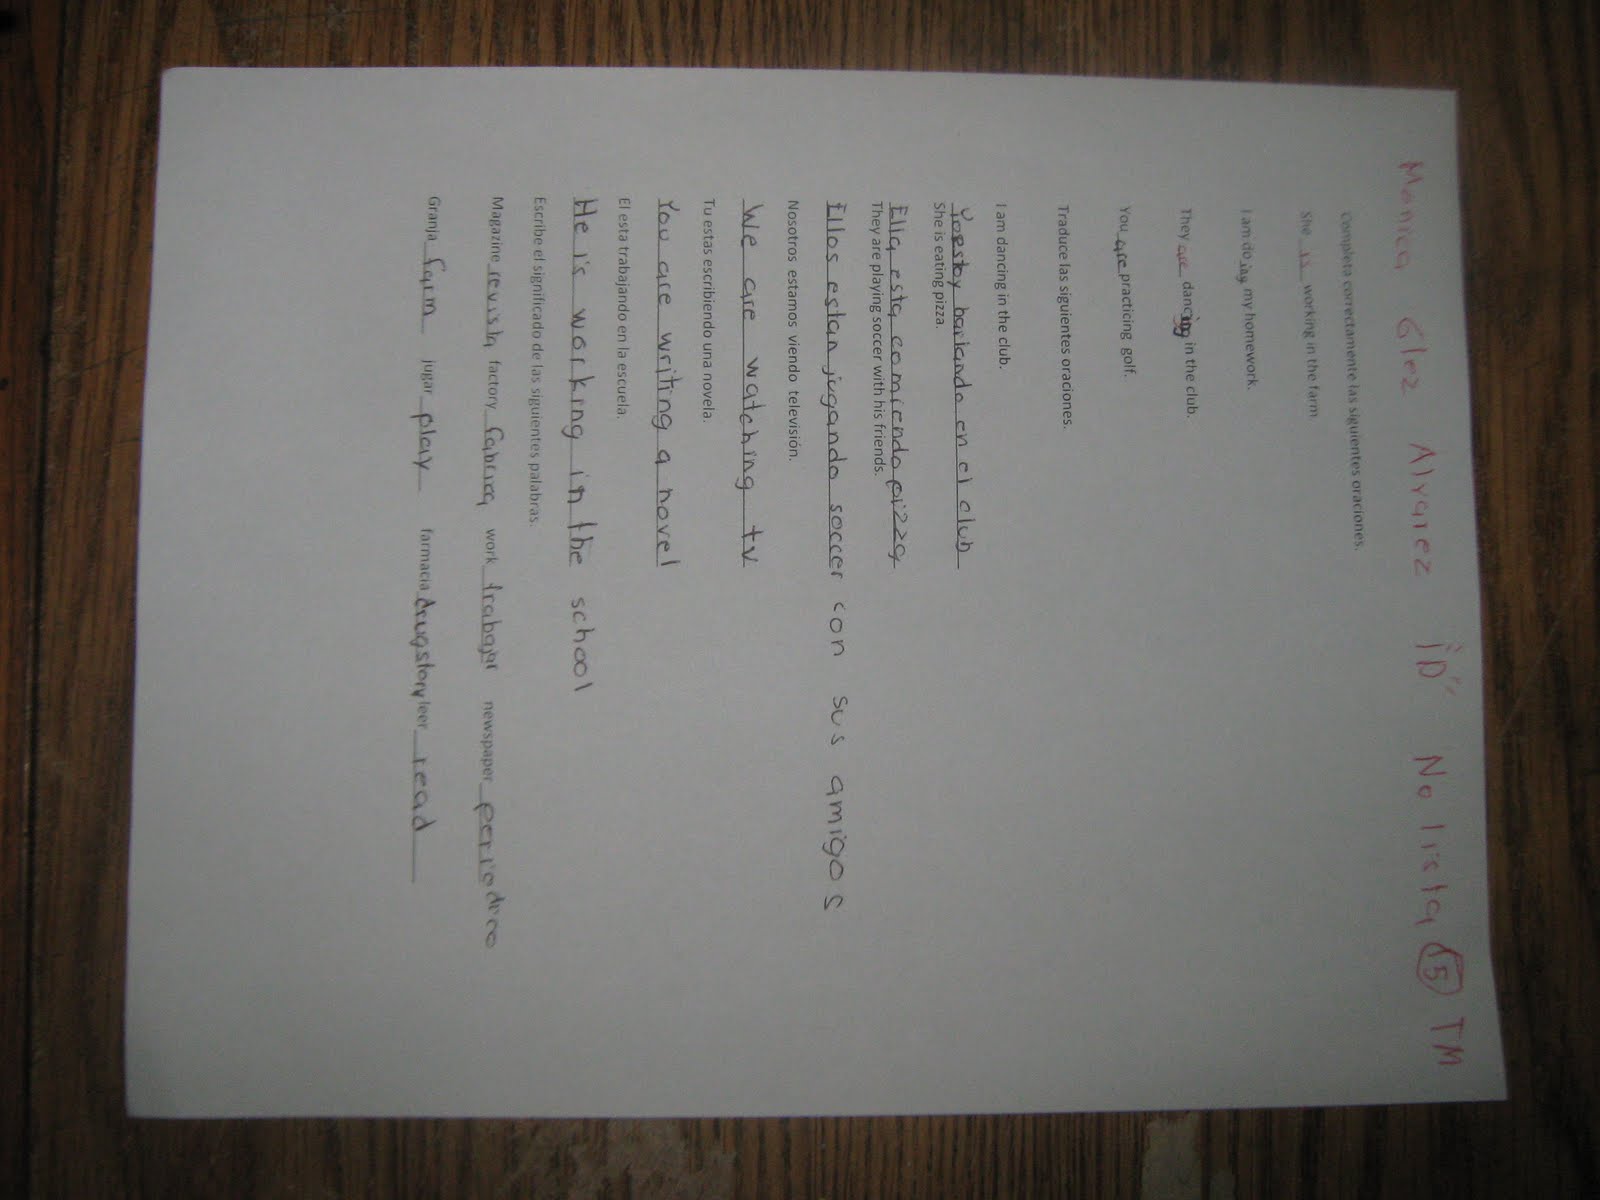 Monica Glez Alvarez 1D" No lista 15 TM
Completa correctamente las siguientes oraciones.
She is working in the farm
I am doing my homework.
They are dancing in the club.
You are practicing golf.
Traduce las siguientes oraciones.
I am dancing in the club.
Yo estoy bailando en el club
She is eating pizza.
Ella esta comiendo pizza
They are playing soccer with his friends.
Ellos estan jugando soccer con sus amigos
Nosotros estamos viendo televisión.
We are watching tv
Tu estas escribiendo una novela.
You are writing a novel
El esta trabajando en la escuela.
He is working in the school
Escribe el significado de las siguientes palabras.
Magazine revista factory fabrica work trabajar newspaper periodico
Granja farm jugar play farmacia drugstory leer read